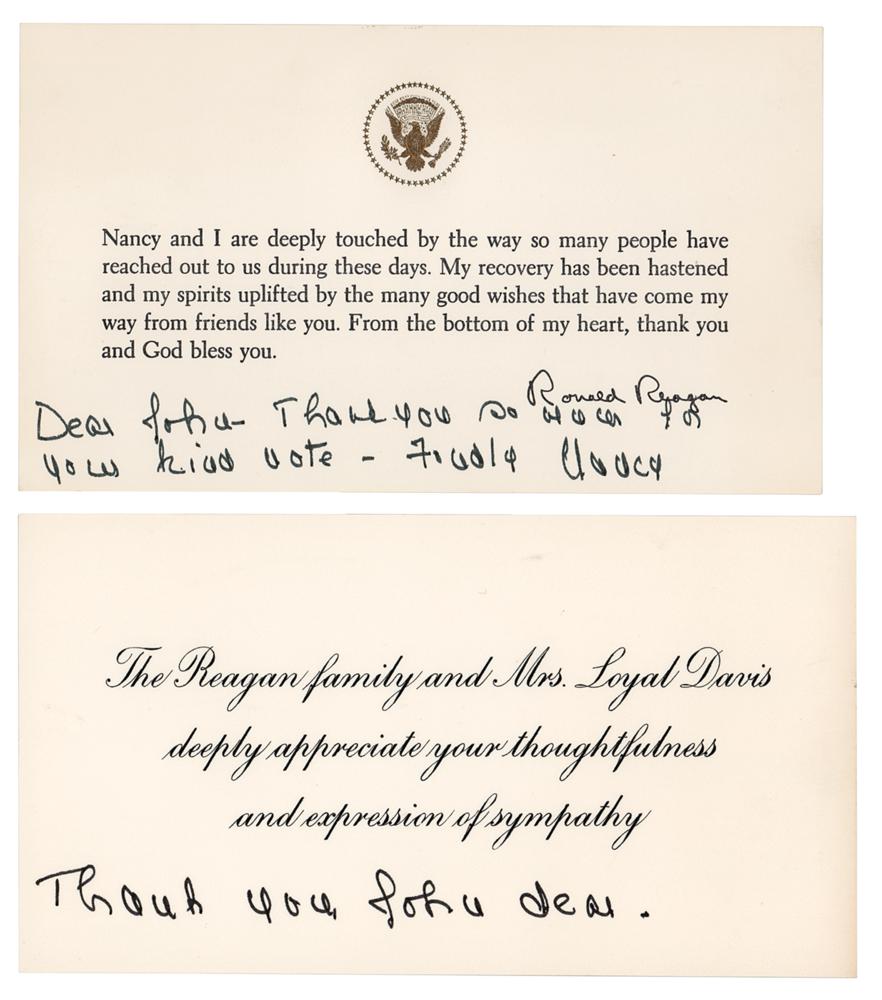 Nancy and I are deeply touched by the way so many people have
reached out to us during these days. My recovery has been hastened
and my spirits uplifted by the many good wishes that have come my
way from friends like you. From the bottom of my heart, thank you
and God bless you.
Ronald Reagan
Dear John - Thank you so much for
your kind note - Fondly Nancy
The Reagan family and Mrs. Loyal Davis
deeply appreciate your thoughtfulness
and expression of sympathy
Thank you John dear.